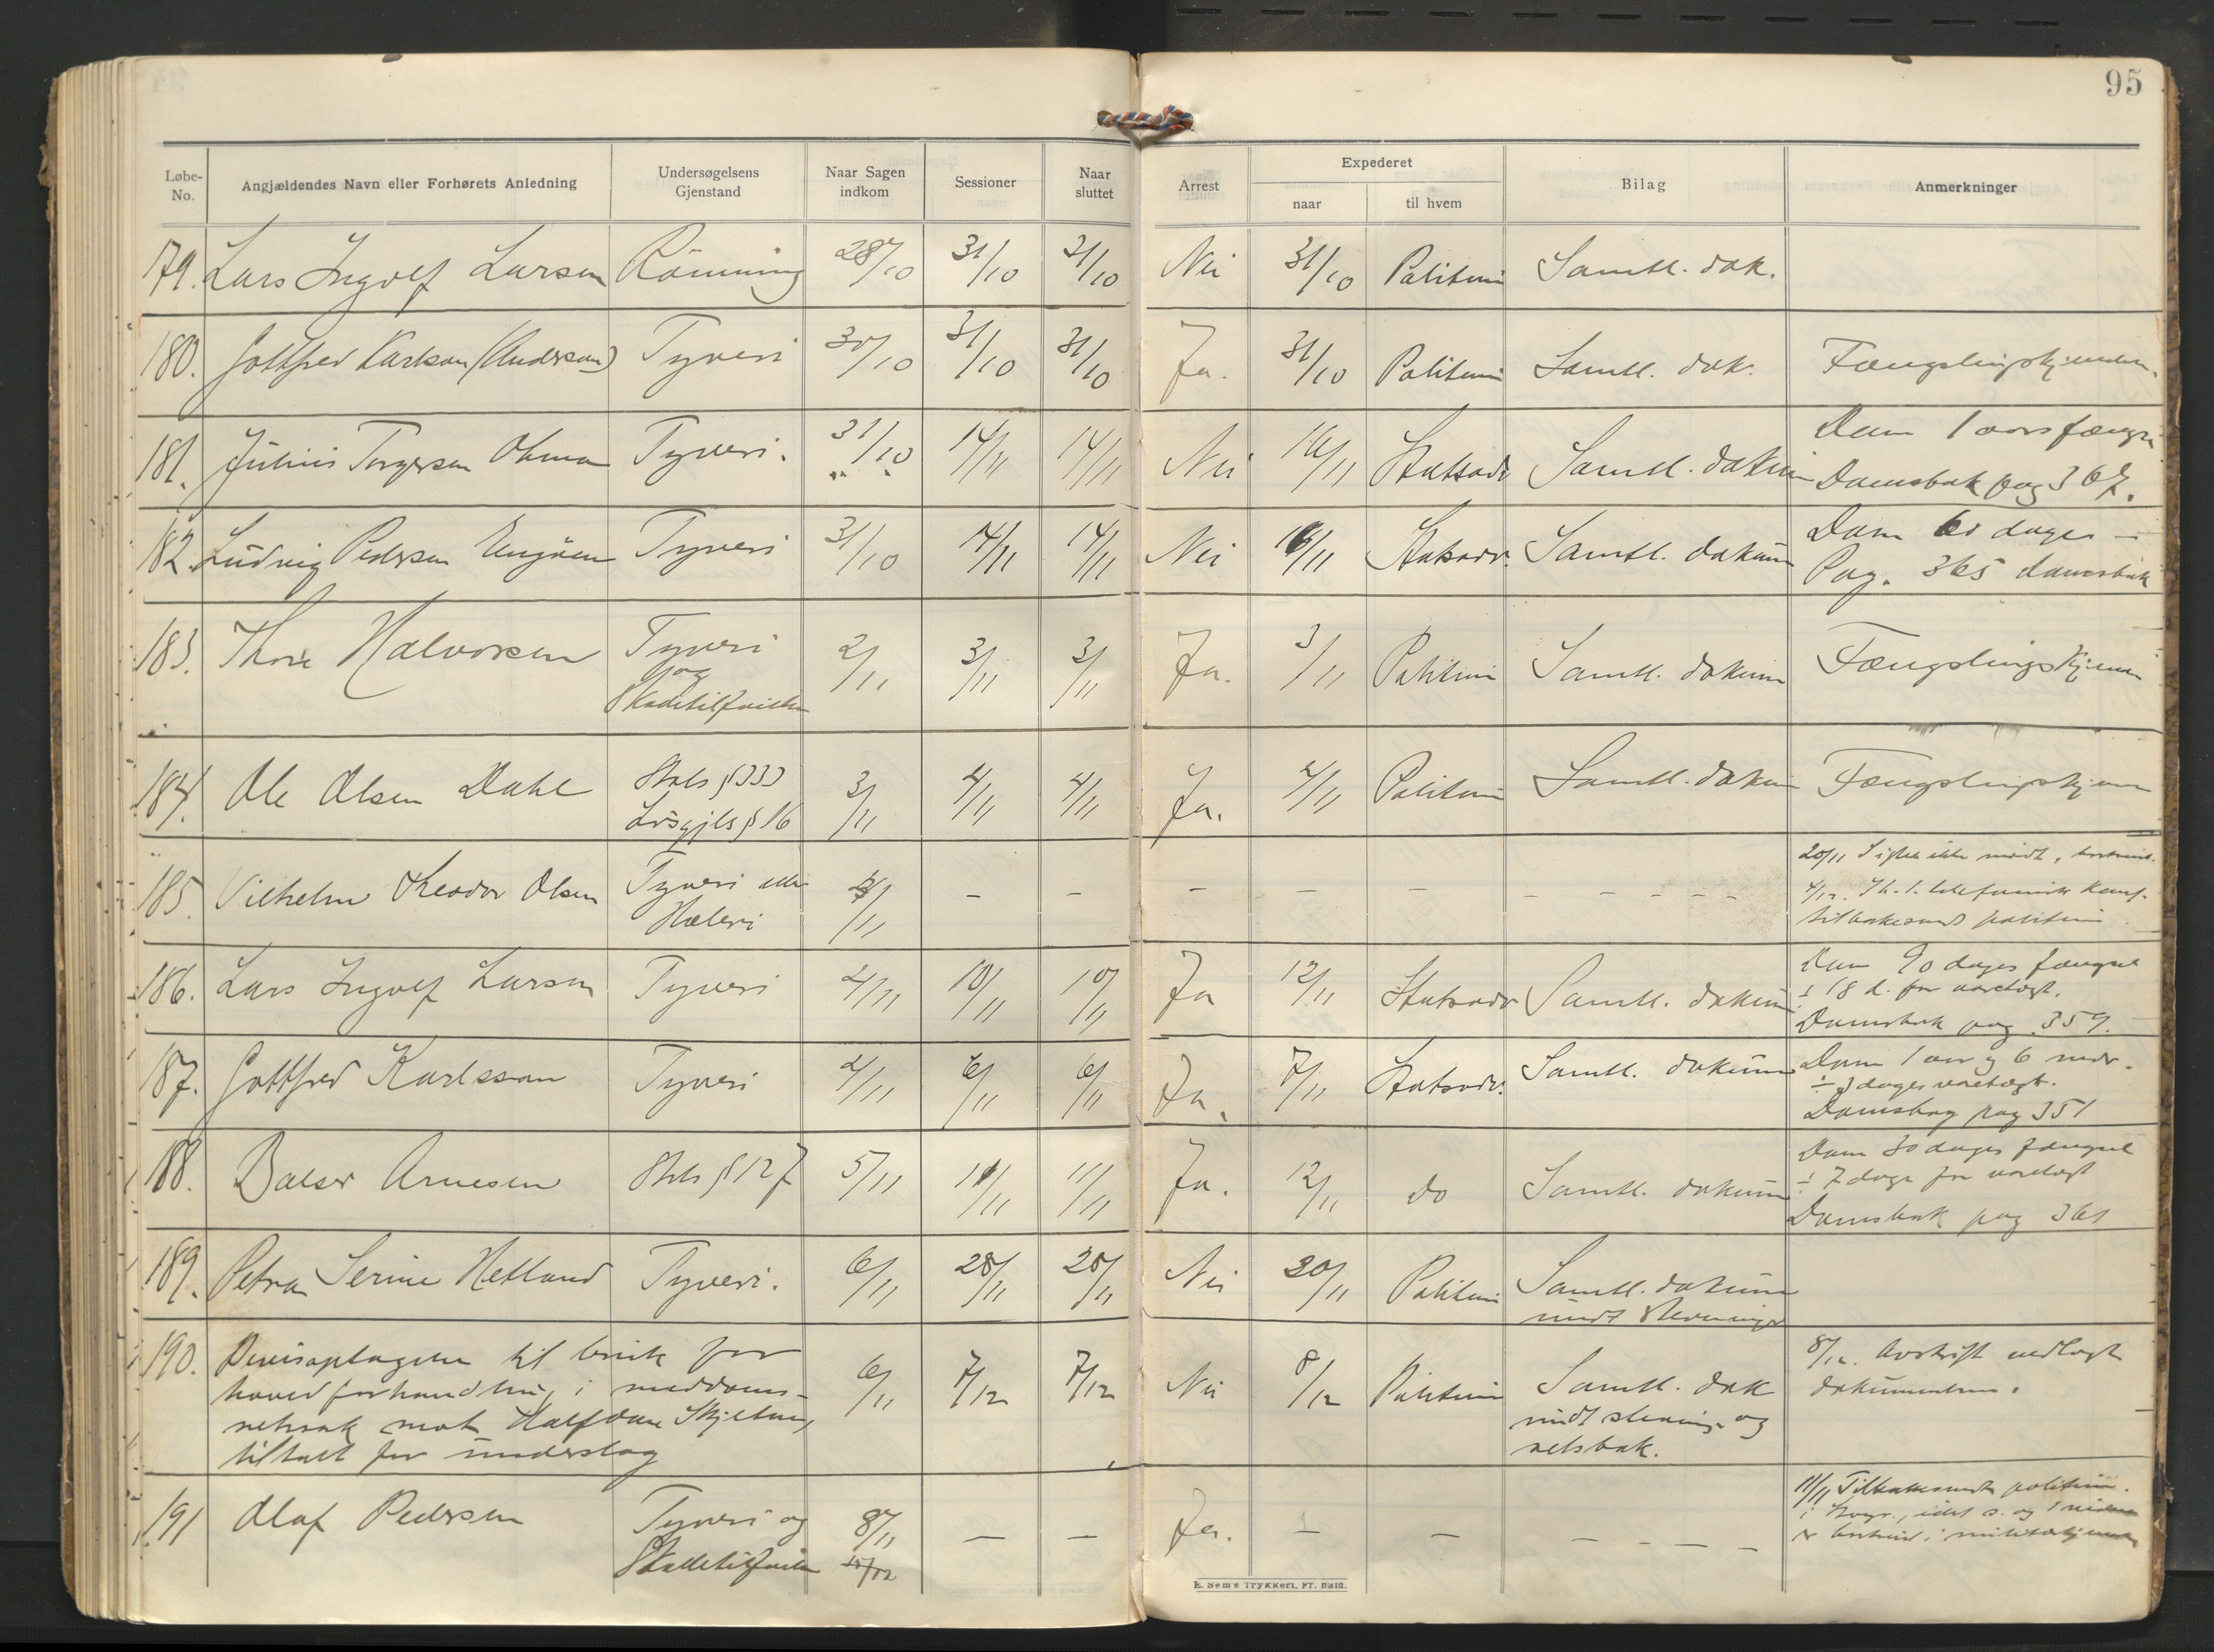 95
Løbe-No.
Angjældendes Navn eller Forhørets Anledning
Undersøgelsens Gjenstand
Naar Sagen indkom
Sessioner
Naar sluttet
Arrest
Expederet
naar
til hvem
Bilag
Anmerkninger
179. Lars Ingolf Larsen Rømning 28/10 31/10 31/10 Nei 31/10 Politiet Samtl. dok.
180. Gottfred Karlson (Anderson) Tyveri 30/10 31/10 31/10 Ja. 31/10 Politiet Samtl. dok. Fængslingskjendelse.
181. Julius Torgersen Tyveri. 31/10 14/11 14/11 Nei 16/11 Statsadv Samtl. dokum Dom 1 aars fængs
Domsbok pag 367.
182. Ludvig Pedersen Tyveri 31/10 14/11 14/11 Nei 16/11 Statsadv. Samtl. dokum Dom 60 dager
Pag. 365 domsbok
183. Thore Halvorsen Tyveri 2/11 3/11 3/11 Ja. 3/11 Politiet Samtl. dokum Fængslingskjen
og
Skadetilføielse
184. Ole Olsen Dahl Strls § 333 3/11 4/11 4/11 Ja. 4/11 Politiet Samtl. dokum Fængslingskjen
Løsgjls § 16
185. Vilhelm Theodor Olsen Tyveri eller /11 – – – – – – – – – – 20/11 Sigtede ikke mødt, bortreist.
Hæleri 4/12. Ih. t. telefonisk konf.
tilbakesendt politiet
186. Lars Ingolf Larsen Tyveri 4/11 10/11 10/11 Ja 12/11 Statsadv Samtl. dokum Dom 90 dages fængsel
÷ 18 d. for varetægt.
Domsbok pag. 359.
187. Gottfred Karlsson Tyveri 4/11 6/11 6/11 Ja. 7/11 Statsadv. Samtl. dokum Dom 1 aar og 6 mdr.
÷ 3 dages varetægt.
Domsbog pag 351
188. Arnesen Strls § 127 5/11 11/11 11/11 Ja. 12/11 do Samtl. dokum Dom 30 dages fængsel
÷ 7 dage for varetægt
Domsbok pag 361
189. Petra Serine Hetland Tyveri. 6/11 28/11 28/11 Nei 30/11 Politiet Samtl. dokum
undt stevninger
190. Bevisoptagelse til bruk for 6/11 7/12 7/12 Nei 8/12 Politiet Samtl. dok 8/12. Avskrift vedlagt
hovedforhandling i meddoms- undt stevning og dokumentene.
retssak mot Halfdan retsbok.
tiltalt for underslag
191 Olaf Pedersen Tyveri og 8/11 – – Ja. – – – – – – 11/11 Tilbakesendt politiet.
Skadetilføielse 15/12 i Kragr., idet s. og 1 vidne
er bortreist i militærtjeneste
E. Sem's Trykkeri, Fr. Hald.